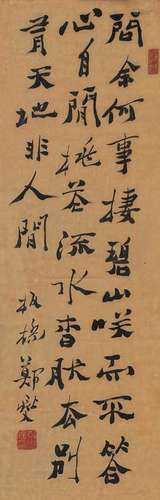 問余何事棲碧山咲而不答
心自閒桃花流水杳肰去别
有天地非人間
板橋鄭燮